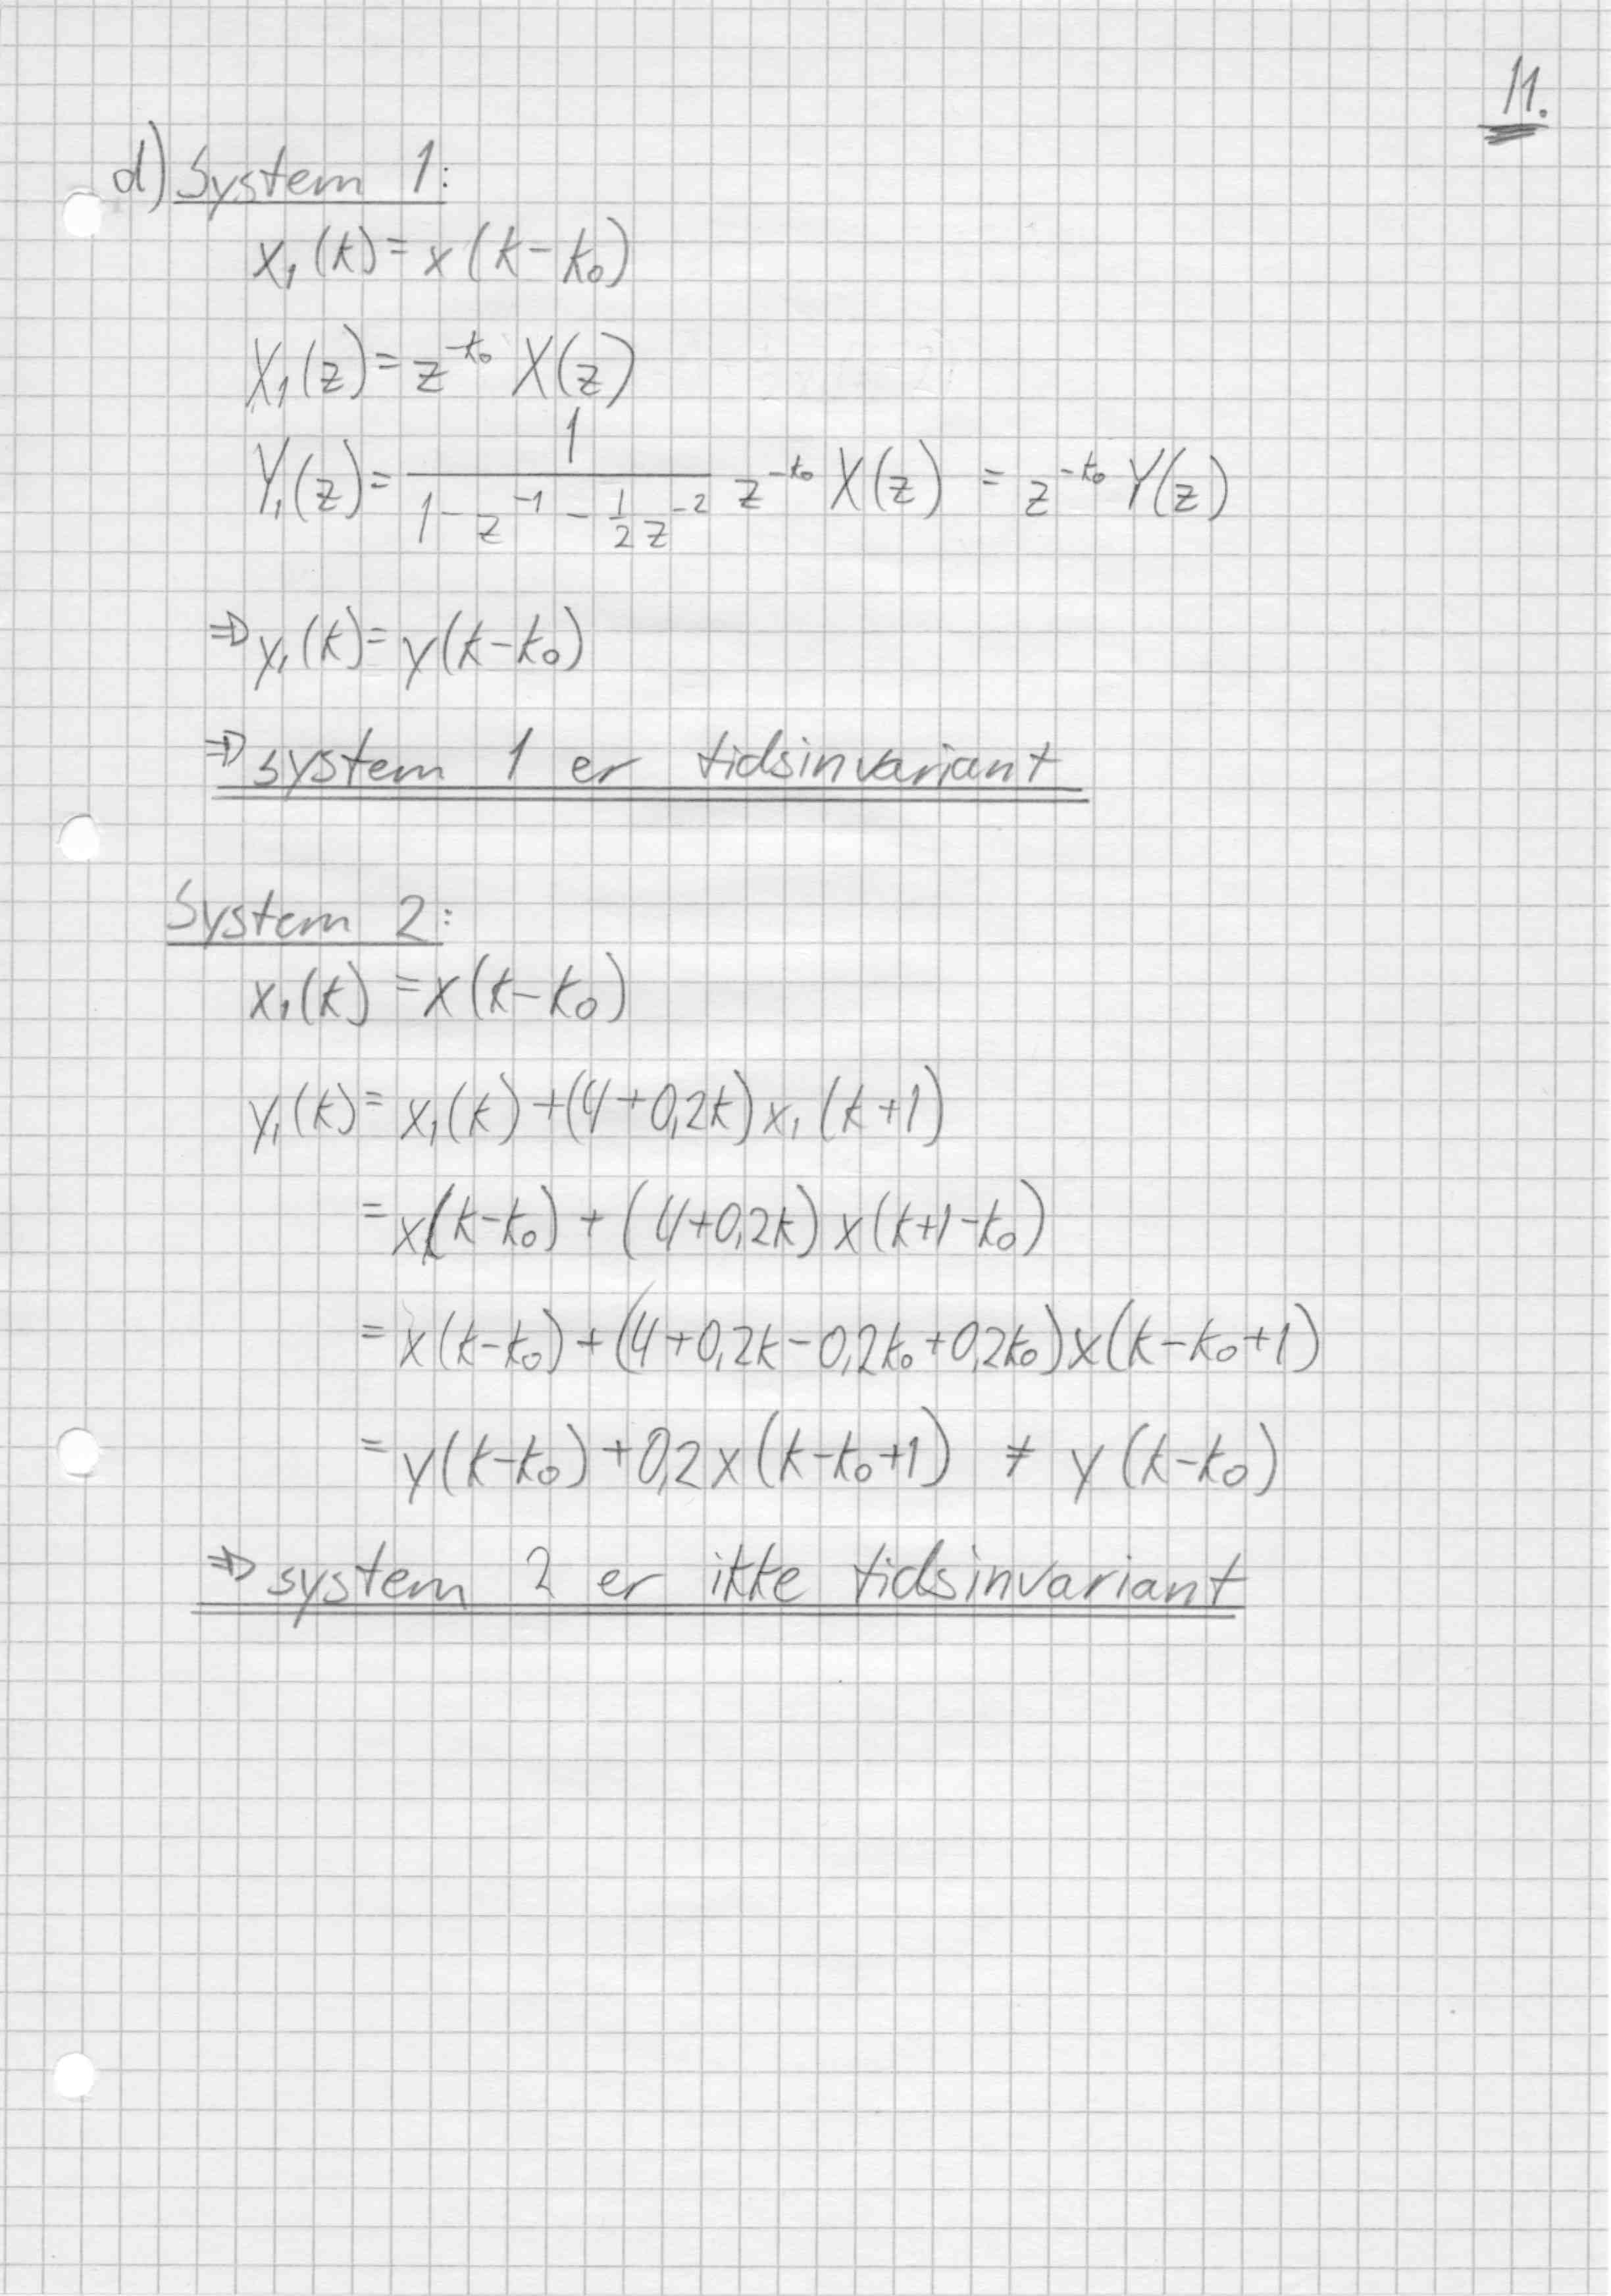 11.
d) System 1:
x₁(k) = x(k-k₀)
X₁(z) = z^(-k₀) X(z)
Y₁(z) = 1/(1 - z^(-1) - 1/2 z^(-2)) z^(-k₀) X(z) = z^(-k₀) Y(z)
⇒ y₁(k) = y(k-k₀)
⇒ system 1 er tidsinvariant
System 2:
x₁(k) = x(k-k₀)
y₁(k) = x₁(k) + (4+0,2k) x₁(k+1)
= x(k-k₀) + (4+0,2k) x(k+1-k₀)
= x(k-k₀) + (4+0,2k-0,2k₀+0,2k₀) x(k-k₀+1)
= y(k-k₀) + 0,2x(k-k₀+1) ≠ y(k-k₀)
⇒ system 2 er ikke tidsinvariant